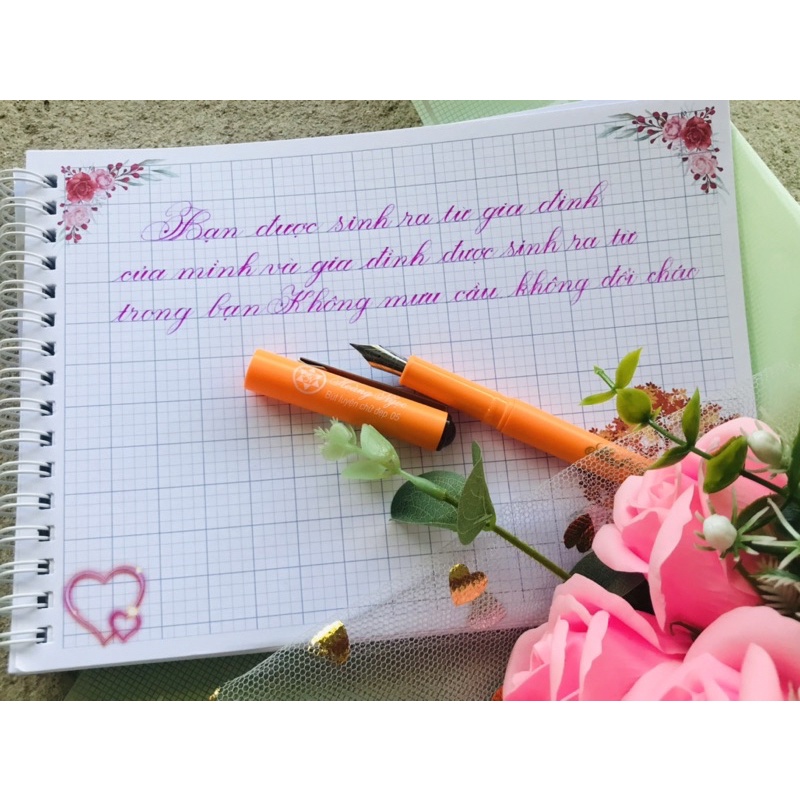 Bạn được sinh ra từ gia đình
của mình và gia đình được sinh ra từ
trong bạn Không mưu cầu không đổi chác
Bút luyện chữ đẹp cô